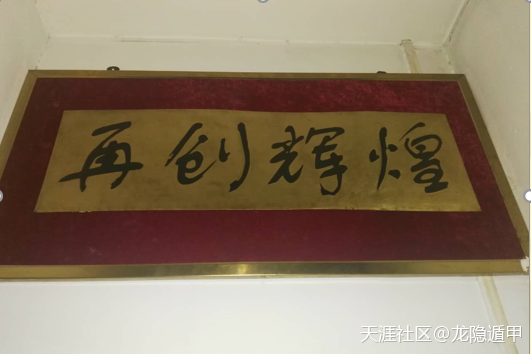 再创辉煌
天涯社区@龙隐遁甲